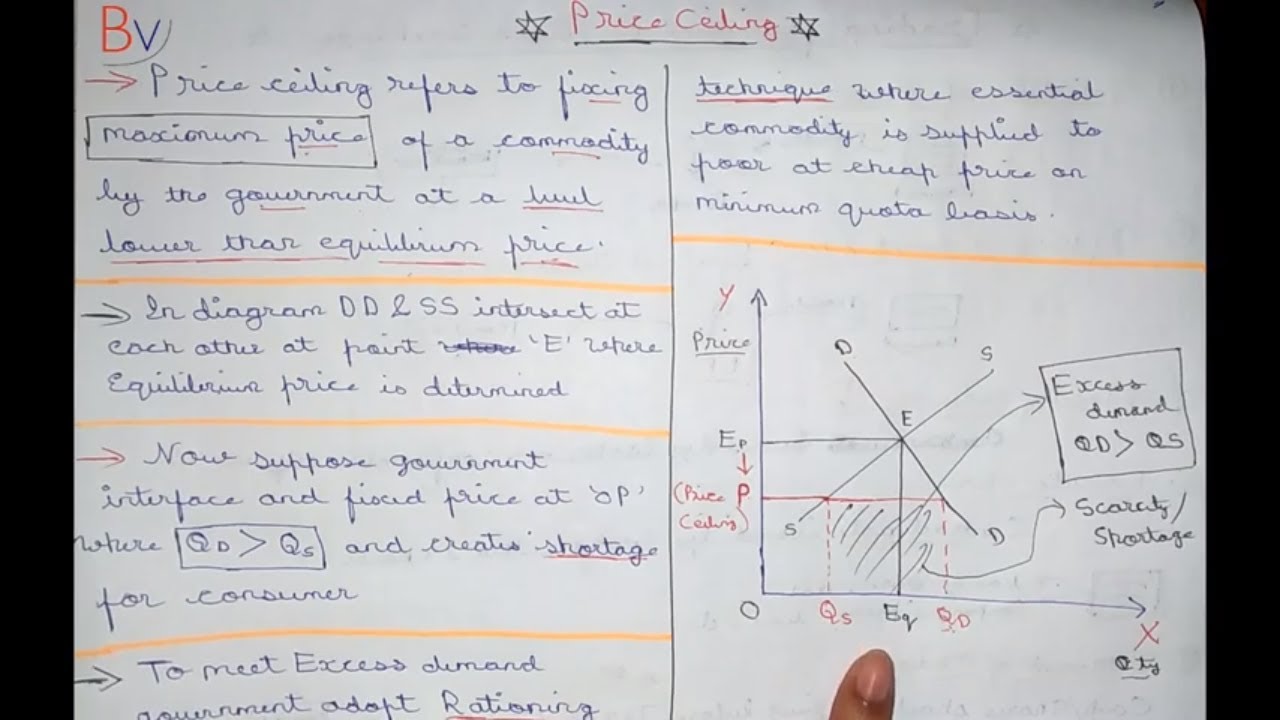 BV
☆ Price Ceiling ☆
→ Price ceiling refers to fixing
maximum price of a commodity
by the government at a level
lower than equilibrium price.
→ In diagram DD & SS intersect at
each other at point 'E' where
Equilibrium price is determined
→ Now suppose government
interface and fixed price at 'OP'
where QD > QS and creates shortage
for consumer
→ To meet Excess demand
government adopt Rationing
technique where essential
commodity is supplied to
poor at cheap price on
minimum quota basis.
Y
Price
D
S
E
EP
(Price P
Ceiling)
S
D
O
QS
Eq
QD
X
Qty
Excess
demand
QD > QS
Scarcity/
Shortage